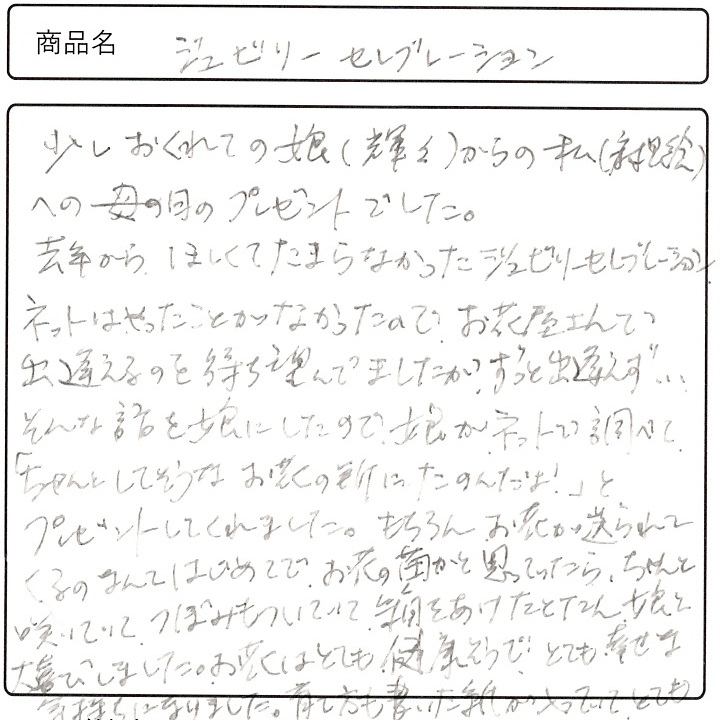 商品名 ジュビリーセレブレーション
少しおくれての娘(輝々)からの私()
への母の日のプレゼントでした。
去年から、ほしくてたまらなかったジュビリーセレブレーション
ネットはやったことがなかったので、お花屋さんで
出逢えるのを待ち望んでましたが、ずっと出逢えず…
そんな話を娘にしたので、娘がネットで調べて
「ちゃんとしてそうなお花の所にたのんだよ!」と
プレゼントしてくれました。もちろんお花が送られて
くるのなんてはじめてで、お花の苗かと思ってったら、ちゃんと
咲いていて、つぼみもついていて、箱をあけたとたん娘と
大喜びしました。お花はとても健康そうで、とても幸せな
気持ちになりました。育て方も書いた紙が入っていてとても